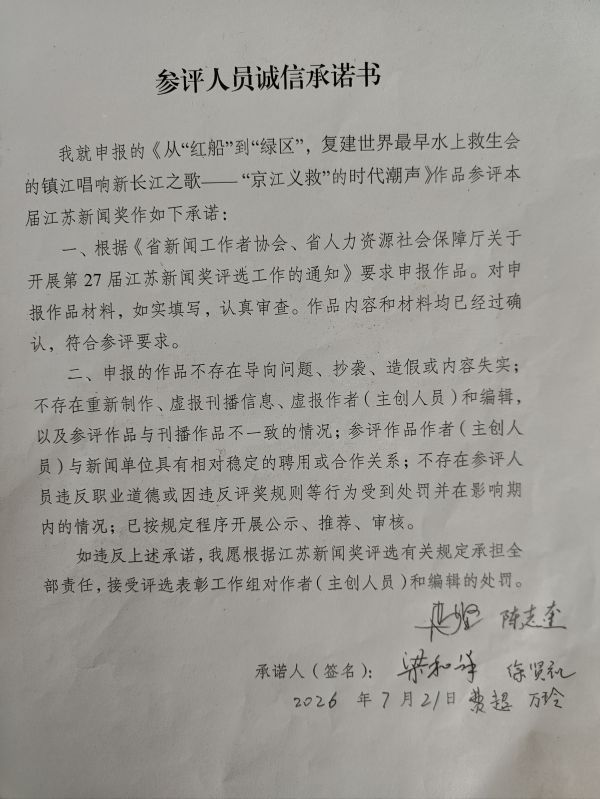 参评人员诚信承诺书
我就申报的《从“红船”到“绿区”，复建世界最早水上救生会
的镇江唱响新长江之歌——“京江义救”的时代潮声》作品参评本
届江苏新闻奖作如下承诺：
一、根据《省新闻工作者协会、省人力资源社会保障厅关于
开展第27届江苏新闻奖评选工作的通知》要求申报作品。对申
报作品材料，如实填写，认真审查。作品内容和材料均已经过确
认，符合参评要求。
二、申报的作品不存在导向问题、抄袭、造假或内容失实；
不存在重新制作、虚报刊播信息、虚报作者（主创人员）和编辑，
以及参评作品与刊播作品不一致的情况；参评作品作者（主创人
员）与新闻单位具有相对稳定的聘用或合作关系；不存在参评人
员违反职业道德或因违反评奖规则等行为受到处罚并在影响期
内的情况；已按规定程序开展公示、推荐、审核。
如违反上述承诺，我愿根据江苏新闻奖评选有关规定承担全
部责任，接受评选表彰工作组对作者（主创人员）和编辑的处罚。
陈志奎
承诺人（签名）：梁和峰 徐贤礼
2026 年 7 月 21 日 费超 万玲